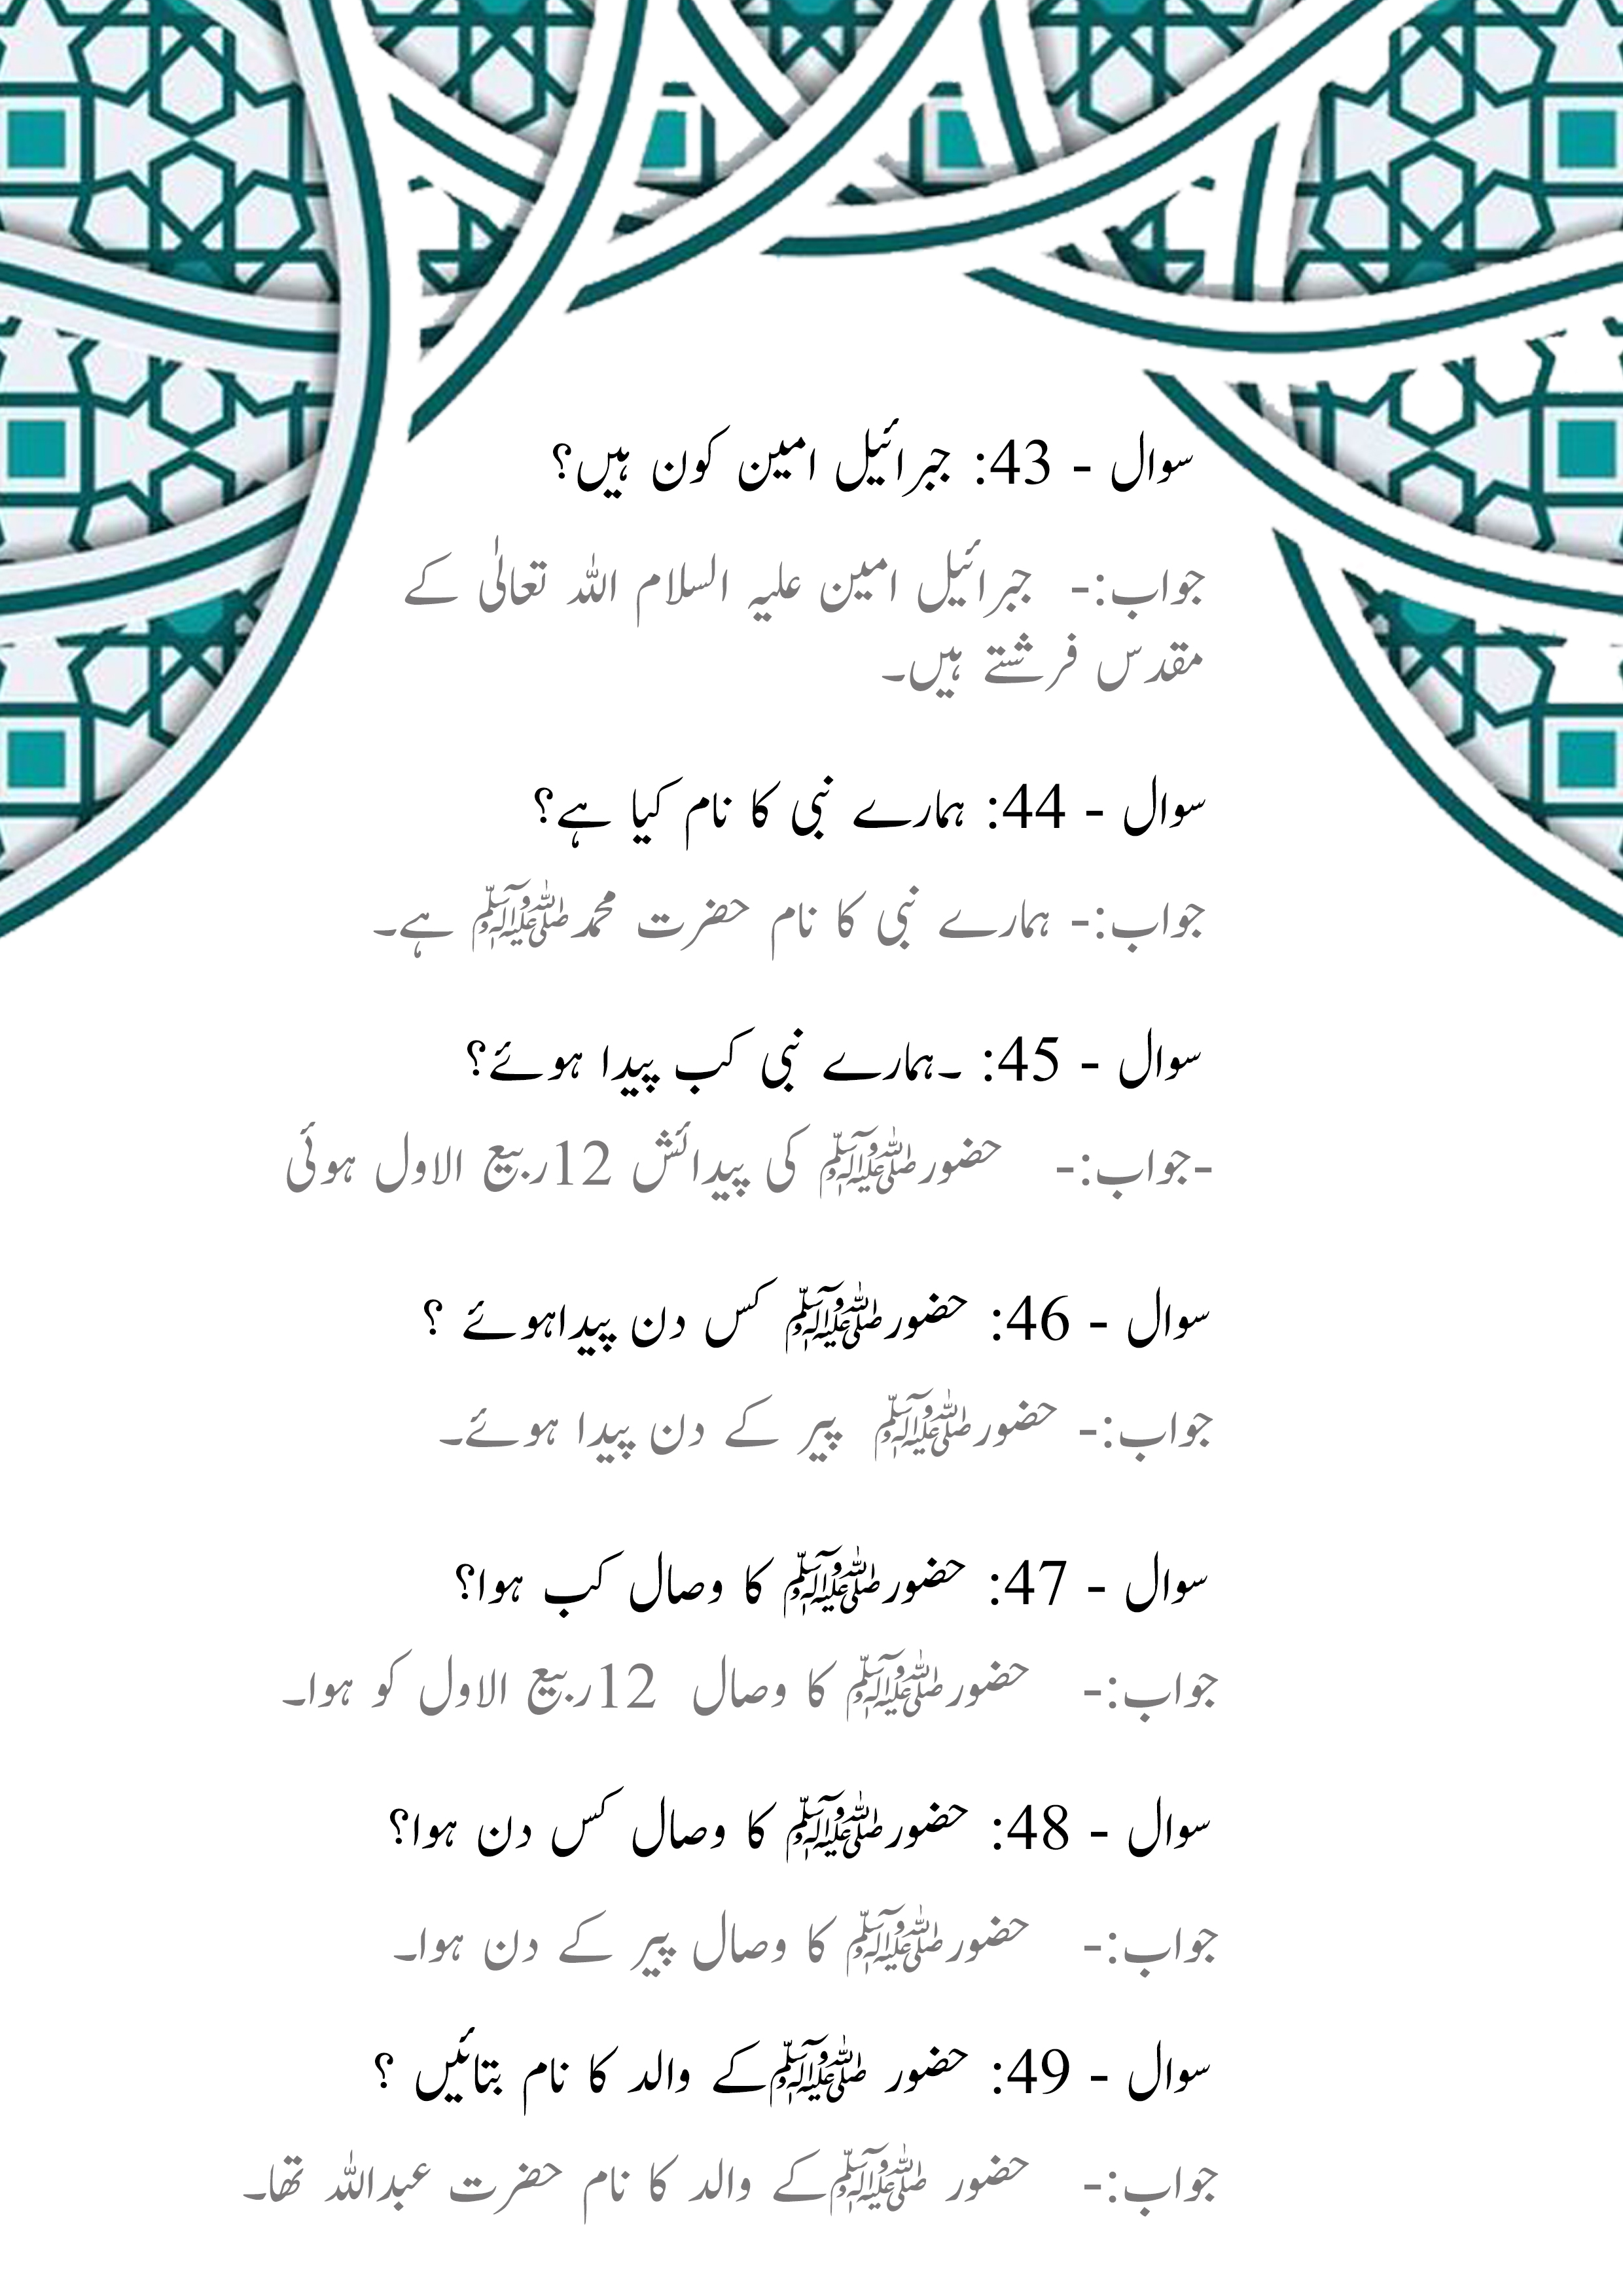 سوال - 43: جبرائیل امین کون ہیں؟
جواب:- جبرائیل امین علیہ السلام اللہ تعالٰی کے
مقدس فرشتے ہیں۔
سوال - 44: ہمارے نبی کا نام کیا ہے؟
جواب:- ہمارے نبی کا نام حضرت محمدﷺ ہے۔
سوال - 45: ۔ہمارے نبی کب پیدا ہوئے؟
-جواب:- حضورﷺ کی پیدائش 12ربیع الاول ہوئی
سوال - 46: حضورﷺ کس دن پیداہوئے ؟
جواب:- حضورﷺ پیر کے دن پیدا ہوئے۔
سوال - 47: حضورﷺ کا وصال کب ہوا؟
جواب:- حضورﷺ کا وصال 12ربیع الاول کو ہوا۔
سوال - 48: حضورﷺ کا وصال کس دن ہوا؟
جواب:- حضورﷺ کا وصال پیر کے دن ہوا۔
سوال - 49: حضور ﷺکے والد کا نام بتائیں ؟
جواب:- حضور ﷺکے والد کا نام حضرت عبداللہ تھا۔